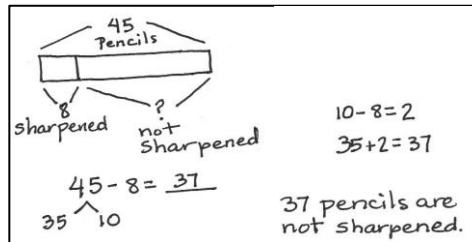 45
Pencils
8
sharpened
?
not
sharpened
45 - 8 = 37
35 10
10 - 8 = 2
35 + 2 = 37
37 pencils are
not sharpened.